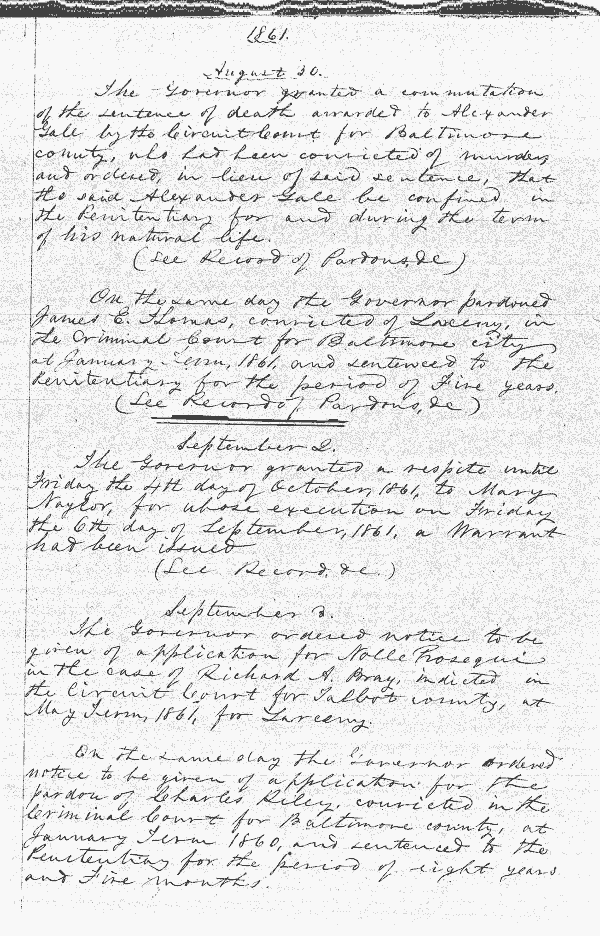 1861.
August 30.
The Governor granted a commutation
of the sentence of death awarded to Alexander
Gale by the Circuit Court for Baltimore
county, who had been convicted of murder,
and ordered, in lieu of said sentence, that
the said Alexander Gale be confined in
the Penitentiary for and during the term
of his natural life.
(See Record of Pardons, &c)
On the same day the Governor pardoned
James E. Thomas, convicted of Larceny, in
the Criminal Court for Baltimore city
at January Term, 1861, and sentenced to the
Penitentiary for the period of Five years.
(See Record of Pardons, &c)
September 2.
The Governor granted a respite until
Friday the 4th day of October, 1861, to Mary
Naylor, for whose execution on Friday
the 6th day of September, 1861, a Warrant
had been issued
(See Record, &c.)
September 3.
The Governor ordered notice to be
given of application for Nolle Prosequi
in the case of Richard A. Bray, indicted in
the Circuit Court for Talbot county, at
May Term, 1861, for Larceny.
On the same day the Governor ordered
notice to be given of application for the
pardon of Charles Riley, convicted in the
Criminal Court for Baltimore county, at
January Term 1860, and sentenced to the
Penitentiary for the period of eight years
and Five months.